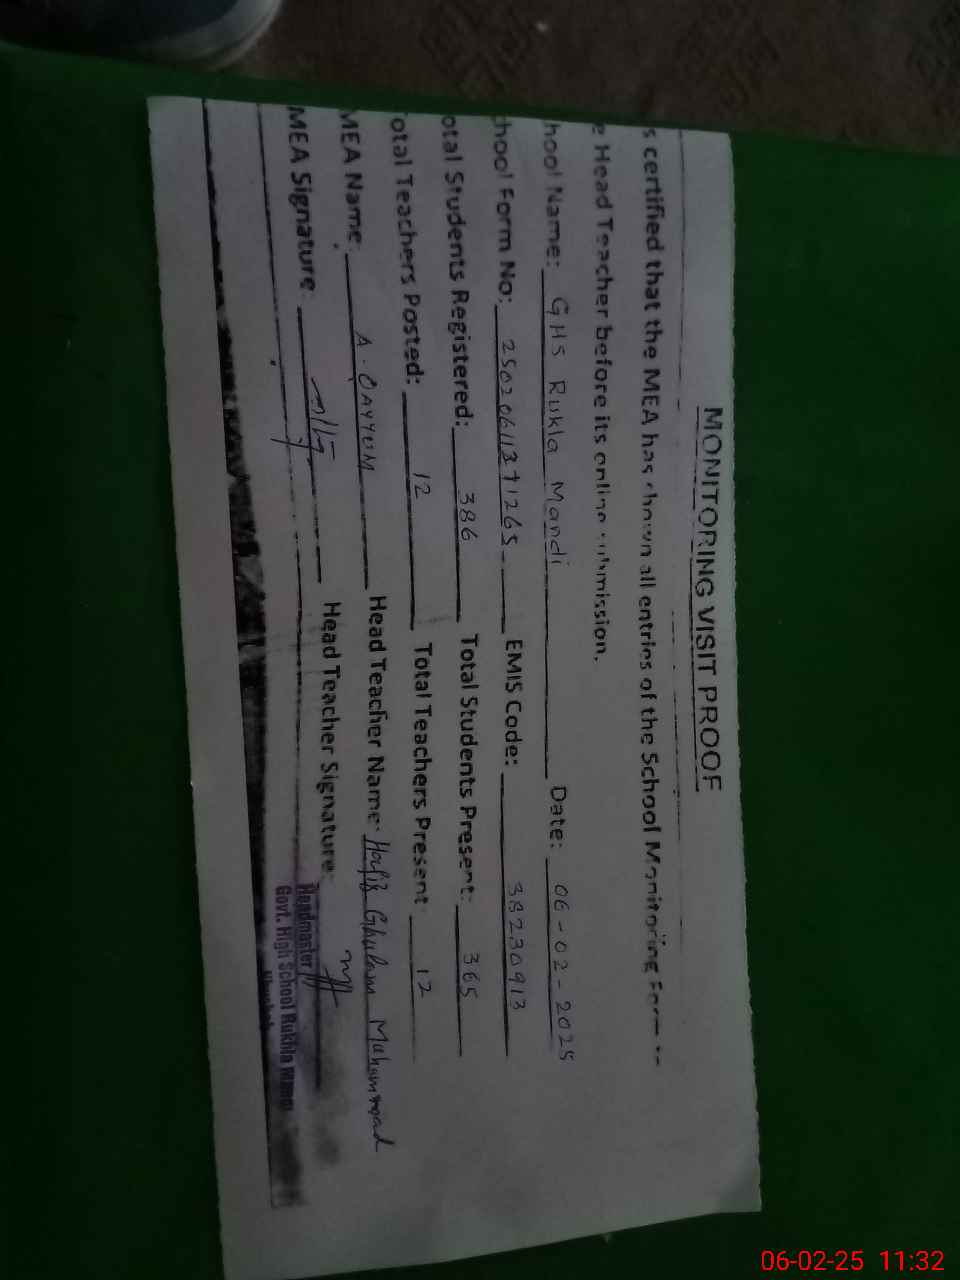 MONITORING VISIT PROOF
s certified that the MEA has shown all entries of the School Monitoring Form to
e Head Teacher before its online submission.
hool Name: GHS Rukla Mandi Date: 06-02-2025
chool Form No: EMIS Code: 38230913
otal Students Registered: 386 Total Students Present: 365
otal Teachers Posted: 12 Total Teachers Present: 12
MEA Name: A. QAYYUM Head Teacher Name: Hafiz Ghulam Muhammad
MEA Signature: Head Teacher Signature:
Headmaster
Govt. High School Rukhla Mandi
06-02-25 11:32